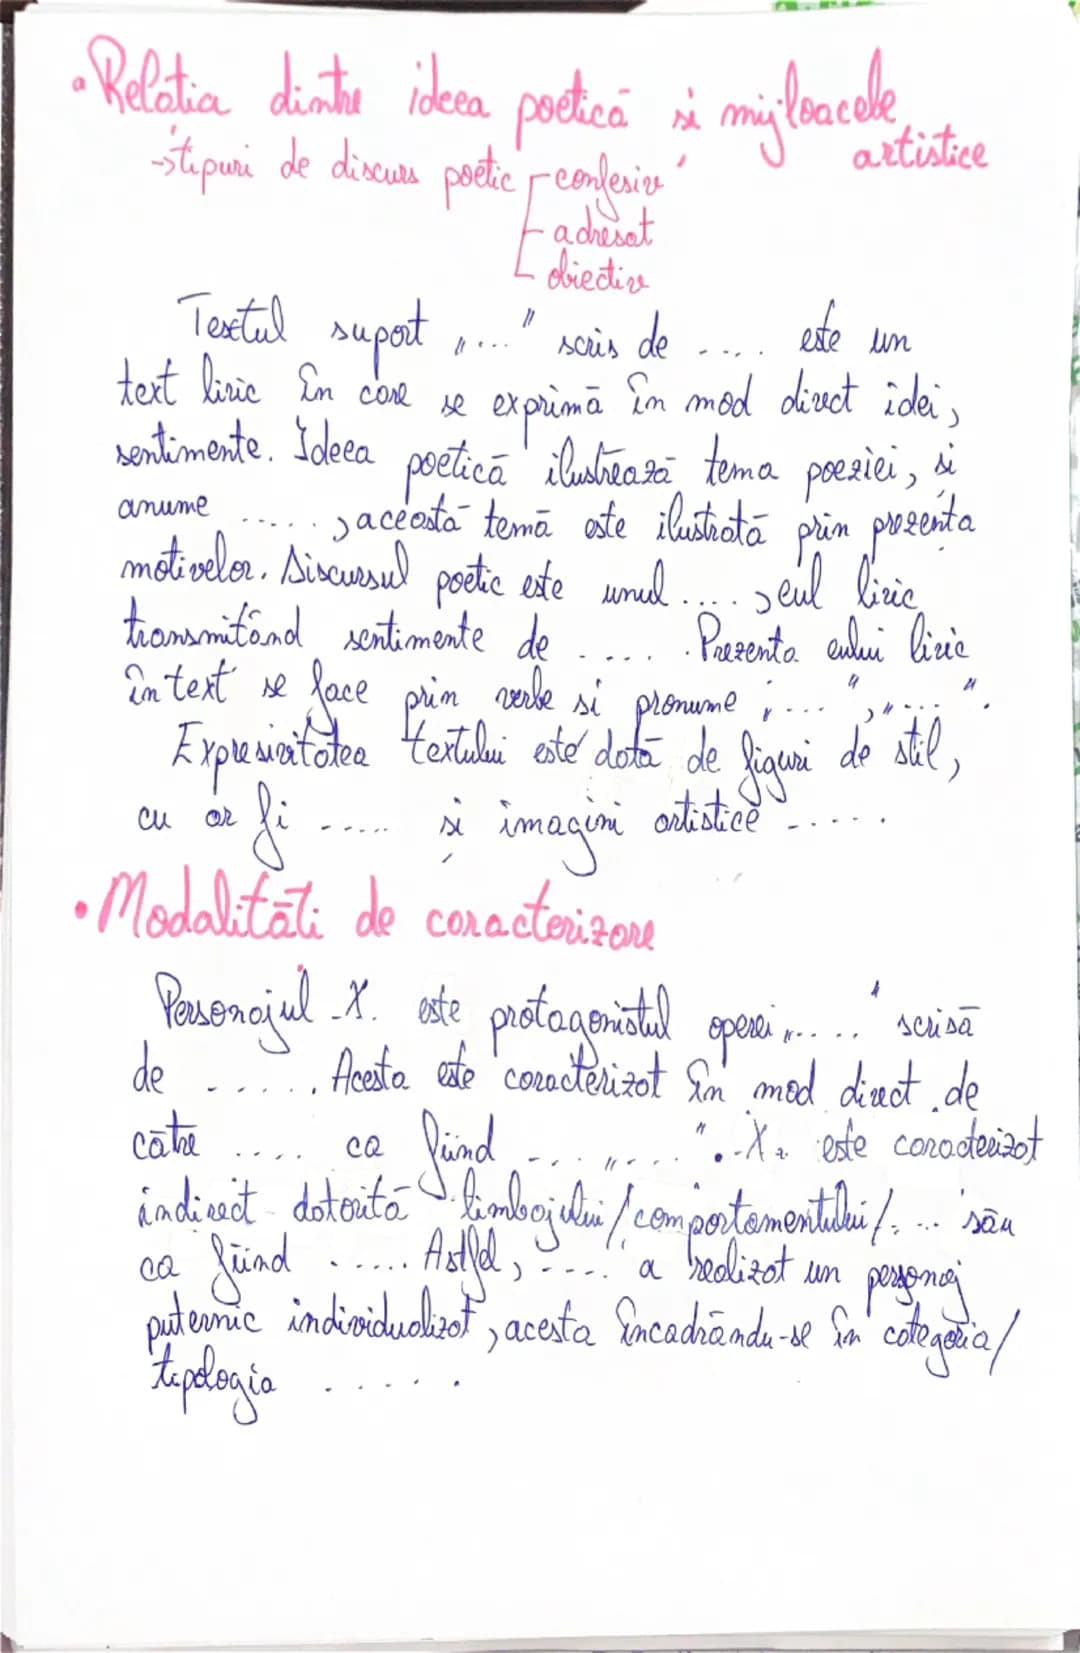 • Relația dintre ideea poetică și mijloacele
artistice
→ tipuri de discurs poetic - confesiv
- adresat
- obiectiv
Textul suport „...." scris de .... este un
text liric în care se exprimă în mod direct idei,
sentimente. Ideea poetică ilustrează tema poeziei, și
anume ....., această temă este ilustrată prin prezența
motivelor. Discursul poetic este unul ...., eul liric
transmitând sentimente de ..... Prezența eului liric
în text se face prin verbe si pronume „....", „....".
Expresivitatea textului este dată de figuri de stil,
cu ar fi ..... și imagini artistice .....
• Modalități de caracterizare
Personajul X. este protagonistul operei „....." scrisă
de ...... Acesta este caracterizat în mod direct de
către .... ca fiind .... „....". X. este caracterizat
indirect datorită limbajului/comportamentului/.... său
ca fiind ..... Astfel, ..... a realizat un personaj
puternic individualizat, acesta încadrându-se în categoria/
tipologia ......